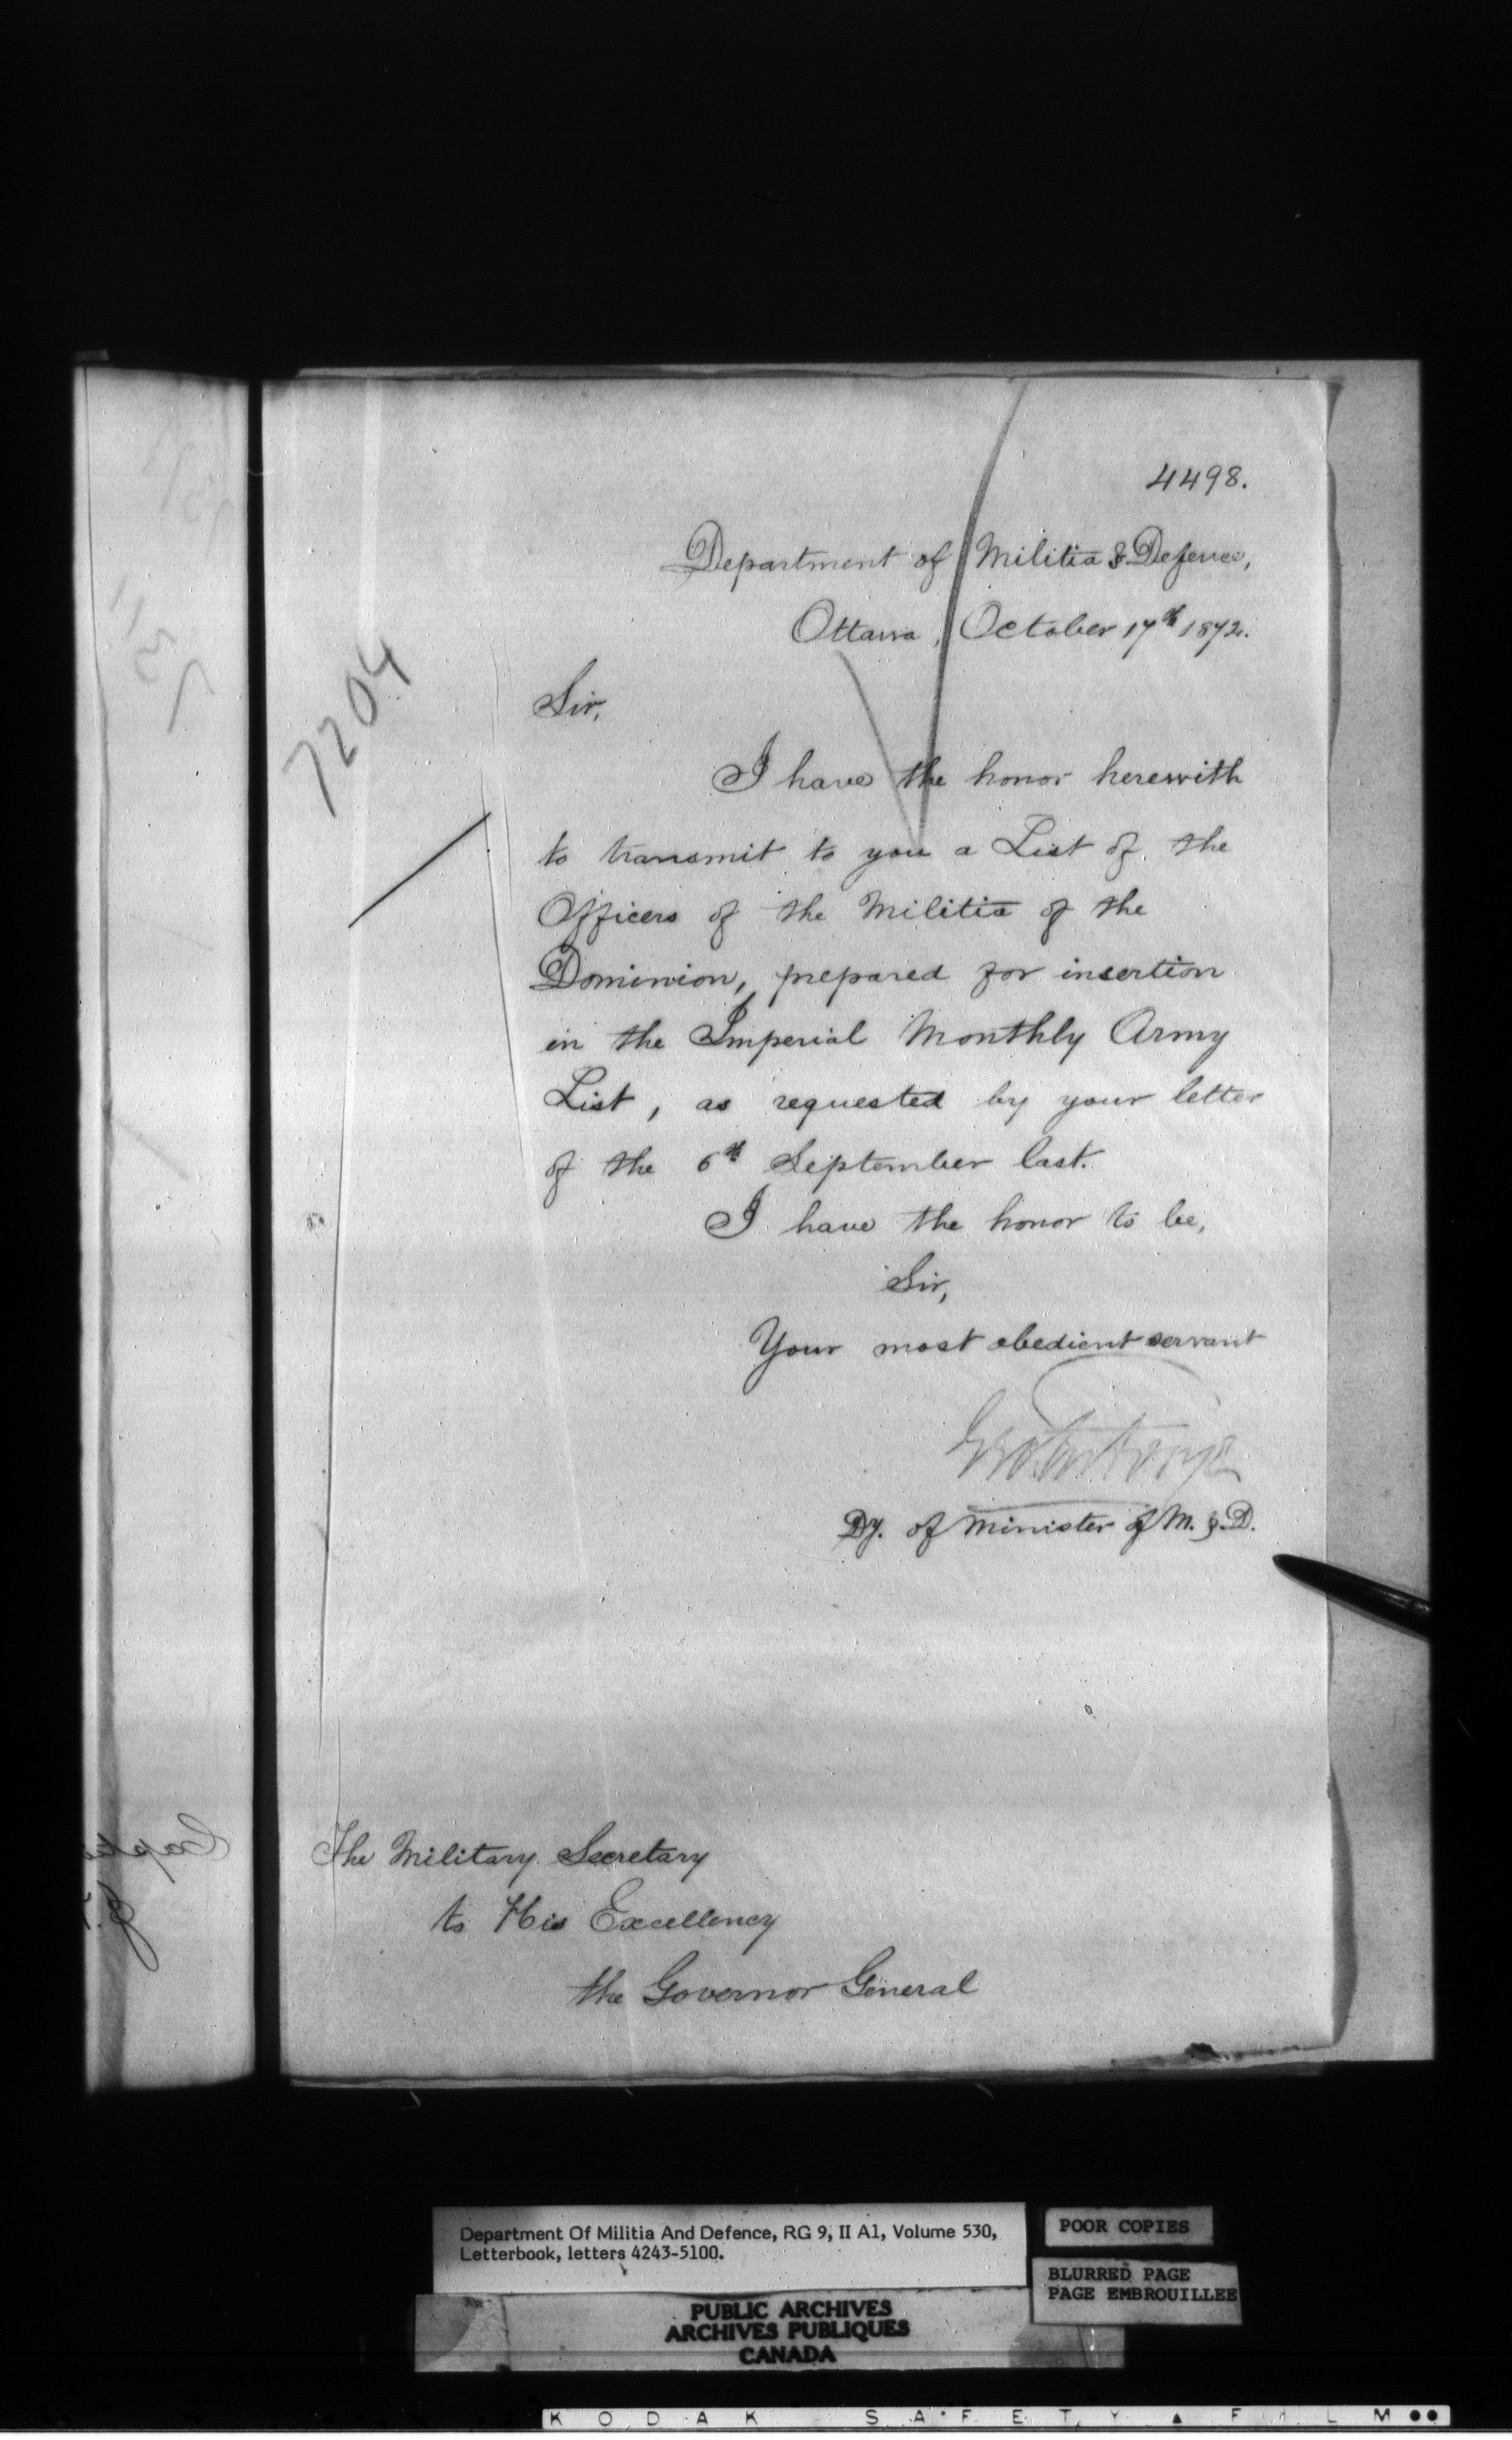 4498.
Department of Militia & Defence,
Ottawa, October 17th 1872.
7204
Sir,
I have the honor herewith
to transmit to you a List of the
Officers of the Militia of the
Dominion, prepared for insertion
in the Imperial Monthly Army
List, as requested by your letter
of the 6th September last.
I have the honor to be,
Sir,
Your most obedient servant
Dy. of Minister of M. & D.
The Military Secretary
to His Excellency
the Governor General
Department Of Militia And Defence, RG 9, II A1, Volume 530,
Letterbook, letters 4243-5100.
POOR COPIES
BLURRED PAGE
PAGE EMBROUILLEE
PUBLIC ARCHIVES
ARCHIVES PUBLIQUES
CANADA
KODAK SAFETY FILM